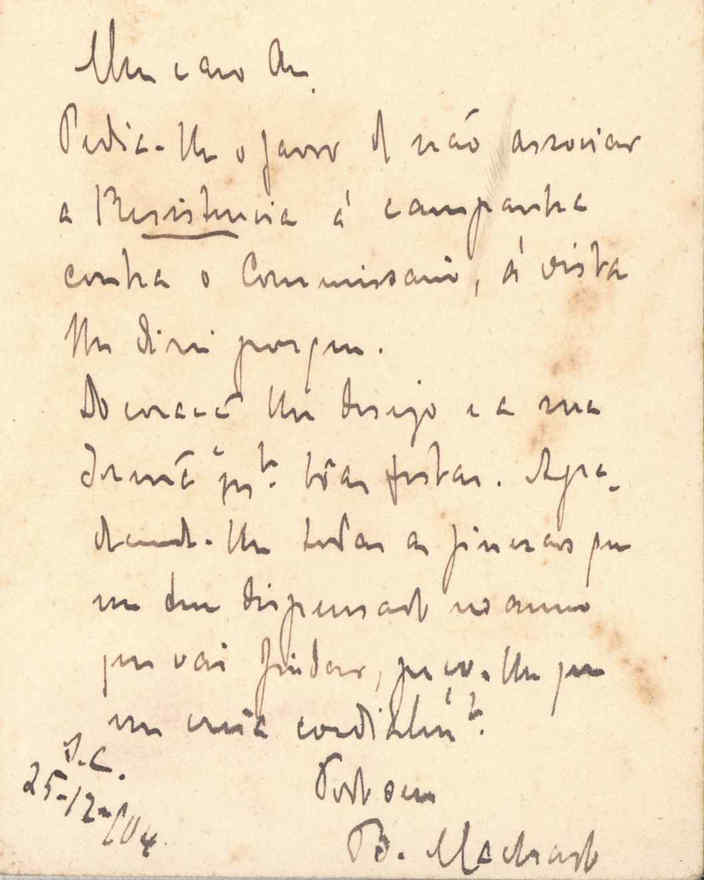 Meu caro Am.
Pedia-lhe o favor de não associar
a Resistencia á campanha
contra o Commissario, á vista
lhe direi porque.
Do coração lhe desejo e a sua
Irmã boas festas. Agra-
decendo-lhe todas as finezas que
me tem dispensado no anno
que vai findar, peço-lhe que
me creia cordialmte.
S.C.
25-12-904
Todo seu
B. Machado